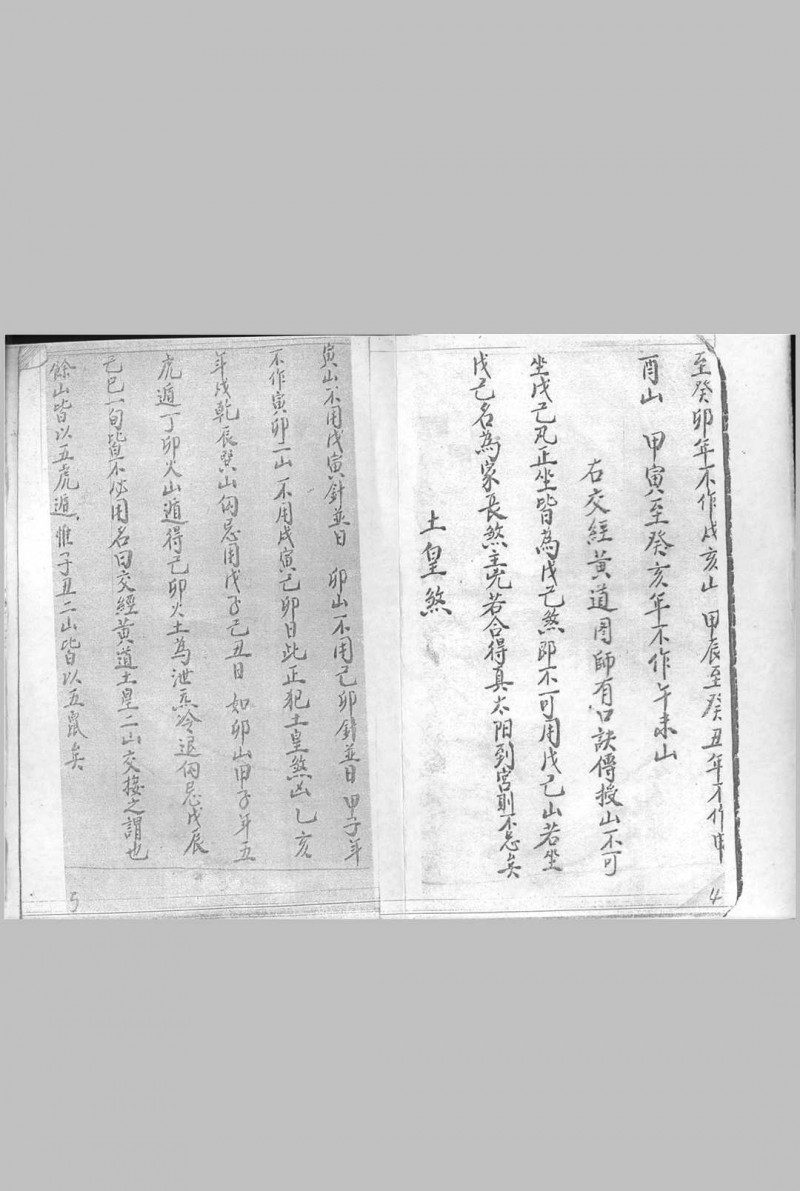 至癸卯年不作戌亥山　甲辰至癸丑年不作申
酉山　甲寅至癸亥年不作午未山
右交經黃道罔師有口訣傳授山不可
坐戊己凡正坐皆為戊己煞即不可用戊己山若坐
戊己名為家長煞主兇若合得真太阳到宮則不忌矣
土皇煞
4
寅山不用戊寅針並日　卯山不用己卯針並日　甲子年
不作寅卯一山不用戊寅己卯日此正犯土皇煞凶　乙亥
年戌乾辰巽山仝忌用戊子己丑日　如卯山甲子年五
虎遁丁卯火山遁得己卯火土為泄炁冷退仝忌戊辰
己巳一旬皆不必用名曰交經黃道土皇二山交接之謂也
餘山皆以五虎遁惟子丑二山皆以五鼠矣
5